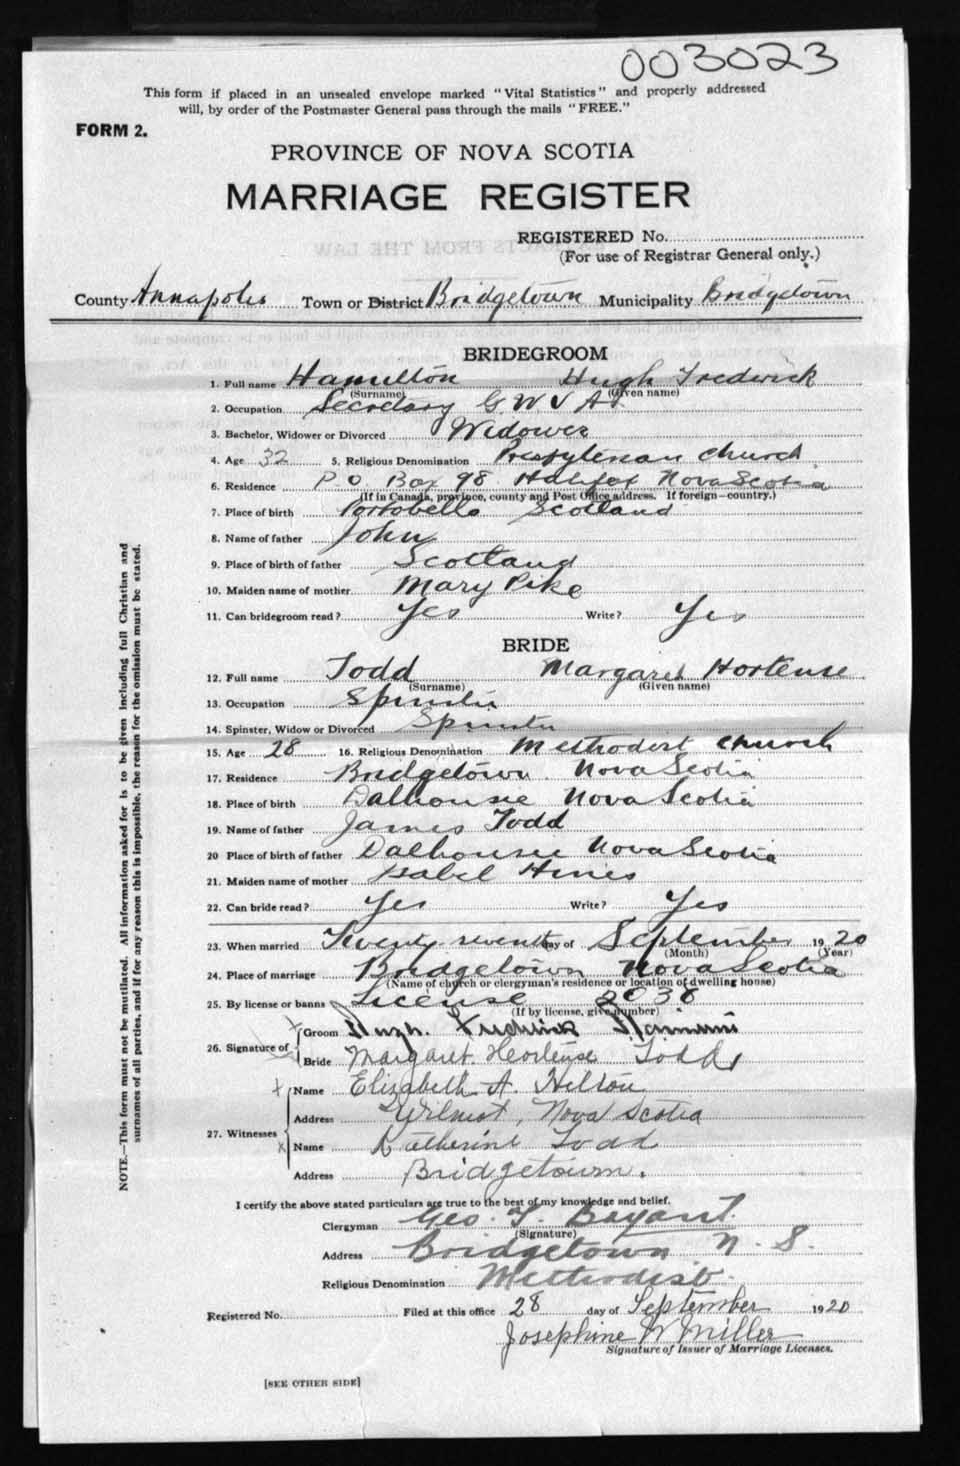 003023
This form if placed in an unsealed envelope marked "Vital Statistics" and properly addressed
will, by order of the Postmaster General pass through the mails "FREE."
FORM 2.
PROVINCE OF NOVA SCOTIA
MARRIAGE REGISTER
REGISTERED No.
(For use of Registrar General only.)
County Annapolis Town or District Bridgetown Municipality Bridgetown
BRIDEGROOM
1. Full name Hamilton Hugh Fredrick
(Surname) (Given name)
2. Occupation Secretary G W V A.
3. Bachelor, Widower or Divorced Widower
4. Age 32 5. Religious Denomination Presbyterian Church
6. Residence P.O. Box 98 Halifax Nova Scotia
(If in Canada, province, county and Post Office address. If foreign—country.)
7. Place of birth Portobello Scotland
8. Name of father John
9. Place of birth of father Scotland
10. Maiden name of mother Mary Pike
11. Can bridegroom read? Yes Write? Yes
BRIDE
12. Full name Todd Margaret Hortense
(Surname) (Given name)
13. Occupation Spinster
14. Spinster, Widow or Divorced Spinster
15. Age 28 16. Religious Denomination Methodist Church
17. Residence Bridgetown Nova Scotia
18. Place of birth Dalhousie Nova Scotia
19. Name of father James Todd
20 Place of birth of father Dalhousie Nova Scotia
21. Maiden name of mother Isabel Hines
22. Can bride read? Yes Write? Yes
23. When married Twenty-seventh day of September 1920
(Month) (Year)
24. Place of marriage Bridgetown Nova Scotia
(Name of church or clergyman's residence or location of dwelling house)
25. By license or banns License 2038
(If by license, give number)
26. Signature of Groom Hugh Fredrick
Bride Margaret Hortense Todd
27. Witnesses Name Elizabeth A. Hilton
Address Wilmot, Nova Scotia
Name Katherine Todd
Address Bridgetown.
I certify the above stated particulars are true to the best of my knowledge and belief.
Clergyman Geo. F. Bayant
(Signature)
Address Bridgetown N. S.
Religious Denomination Methodist.
Registered No. Filed at this office 28 day of September 1920
Josephine W Miller
Signature of Issuer of Marriage Licenses.
[SEE OTHER SIDE]
NOTE.—This form must not be mutilated. All information asked for is to be given including full Christian and
surnames of all parties, and if for any reason this is impossible, the reason for the omission must be stated.